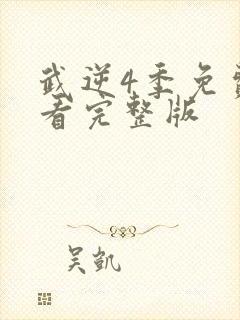 武逆4季免费
看完整版
吴凯